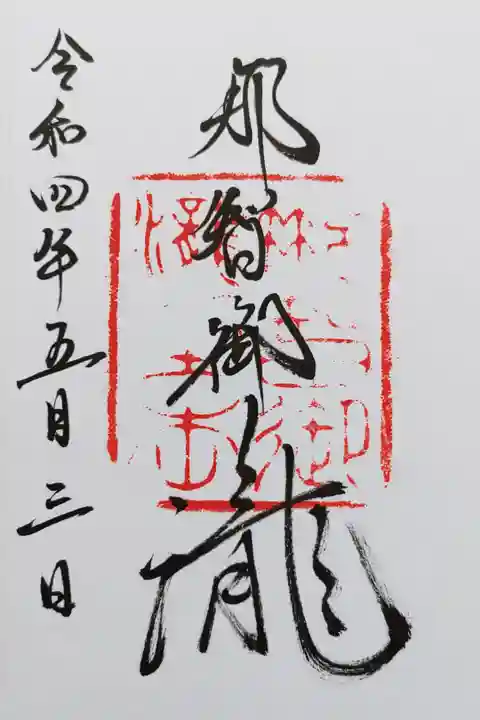 那智御瀧
令和四年五月三日